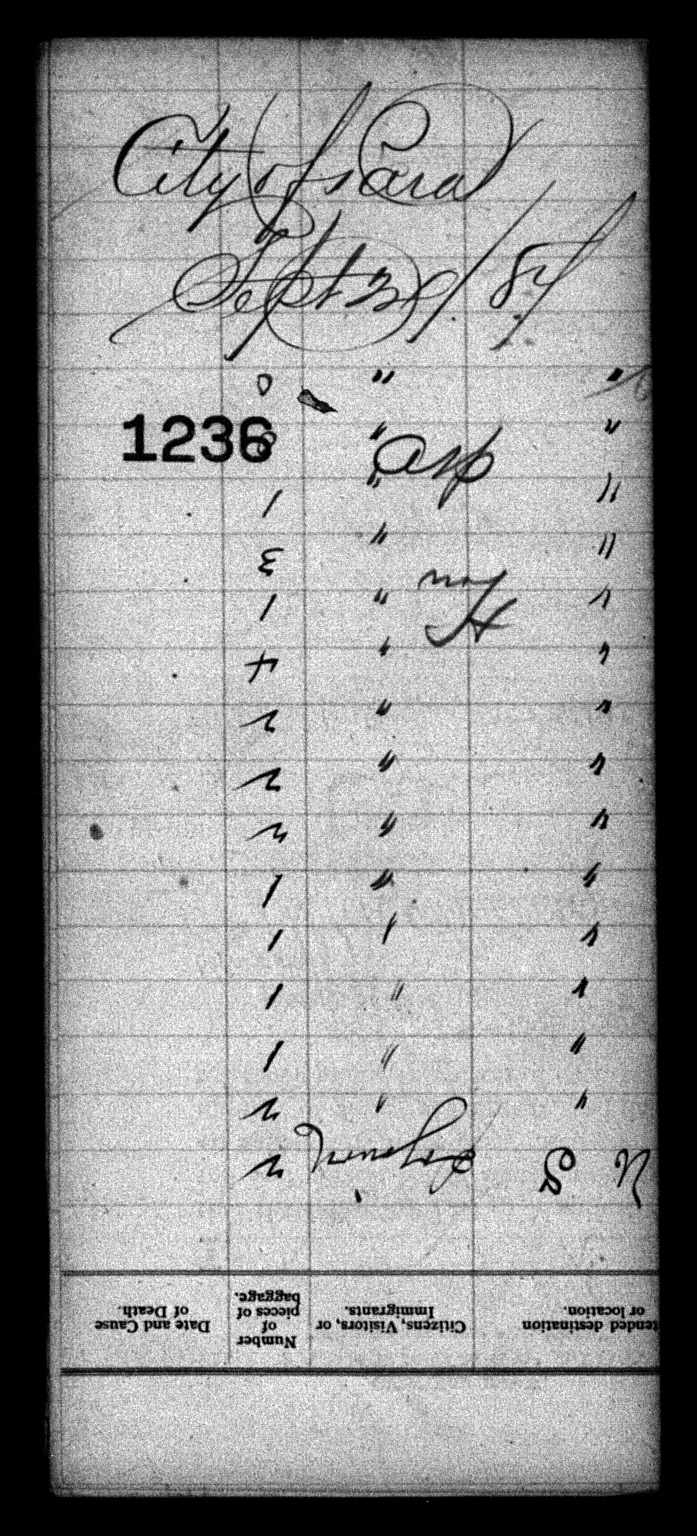 City of Para
Sept 30/87
1236
Asp
tended destination or location.
Citizens, Visitors, or Immigrants.
Number of pieces of baggage.
Date and Cause of Death.
U S Sojourner 2
" " 2
" " 1
" " 1
" " 1
" " 1
" " 2
" " 2
" " 2
" " 4
" " 1
" " 3
" " 1
" "
" " 0